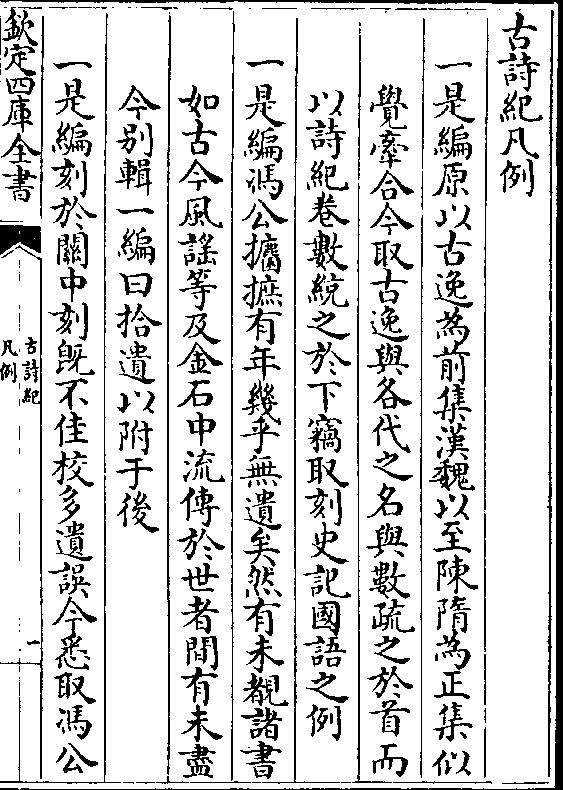 古詩紀凡例
一是編原以古逸為前集漢魏以至陳隋為正集似
覺牽合今取古逸與各代之名與數疏之於首而
以詩紀卷數統之於下竊取刻史記國語之例
一是編馮公攟摭有年幾乎無遺矣然有未覩諸書
如古今風謡等及金石中流傳於世者間有未盡
今别輯一編曰拾遺以附于後
一是編刻於關中刻既不佳校多遺誤今悉取馮公
欽定四庫全書
古詩紀
凡例
一